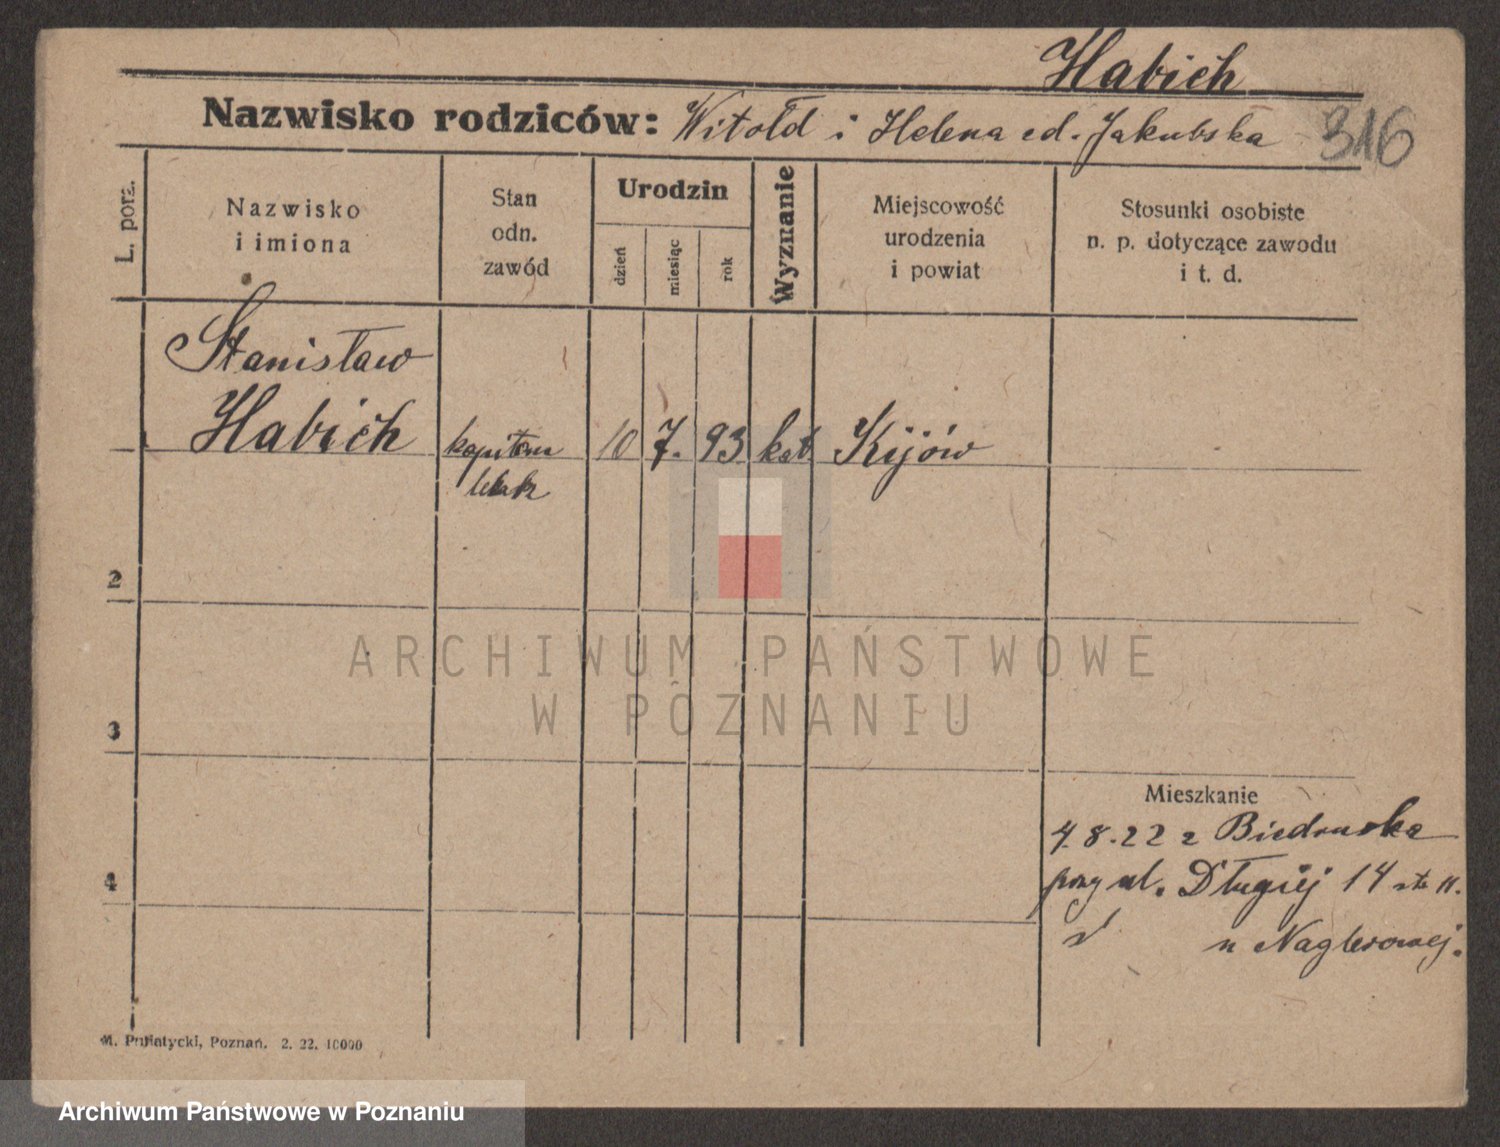 Habich
Nazwisko rodziców: Witołd i Helena cd. Jakubska 316
L. porz.
Nazwisko
i imiona
Stan
odn.
zawód
Urodzin
dzień
miesiąc
rok
Wyznanie
Miejscowość
urodzenia
i powiat
Stosunki osobiste
n. p. dotyczące zawodu
i t. d.
Stanisław
Habich kapitan 10 7. 93 kat Kijów
lekarz
2
ARCHIWUM PAŃSTWOWE
W POZNANIU
3
Mieszkanie
4.8.22 z Biedruska
przy ul. Długiej 14
4
u Naglerowej.
M. Putiatycki, Poznań. 2. 22. 10000
Archiwum Państwowe w Poznaniu